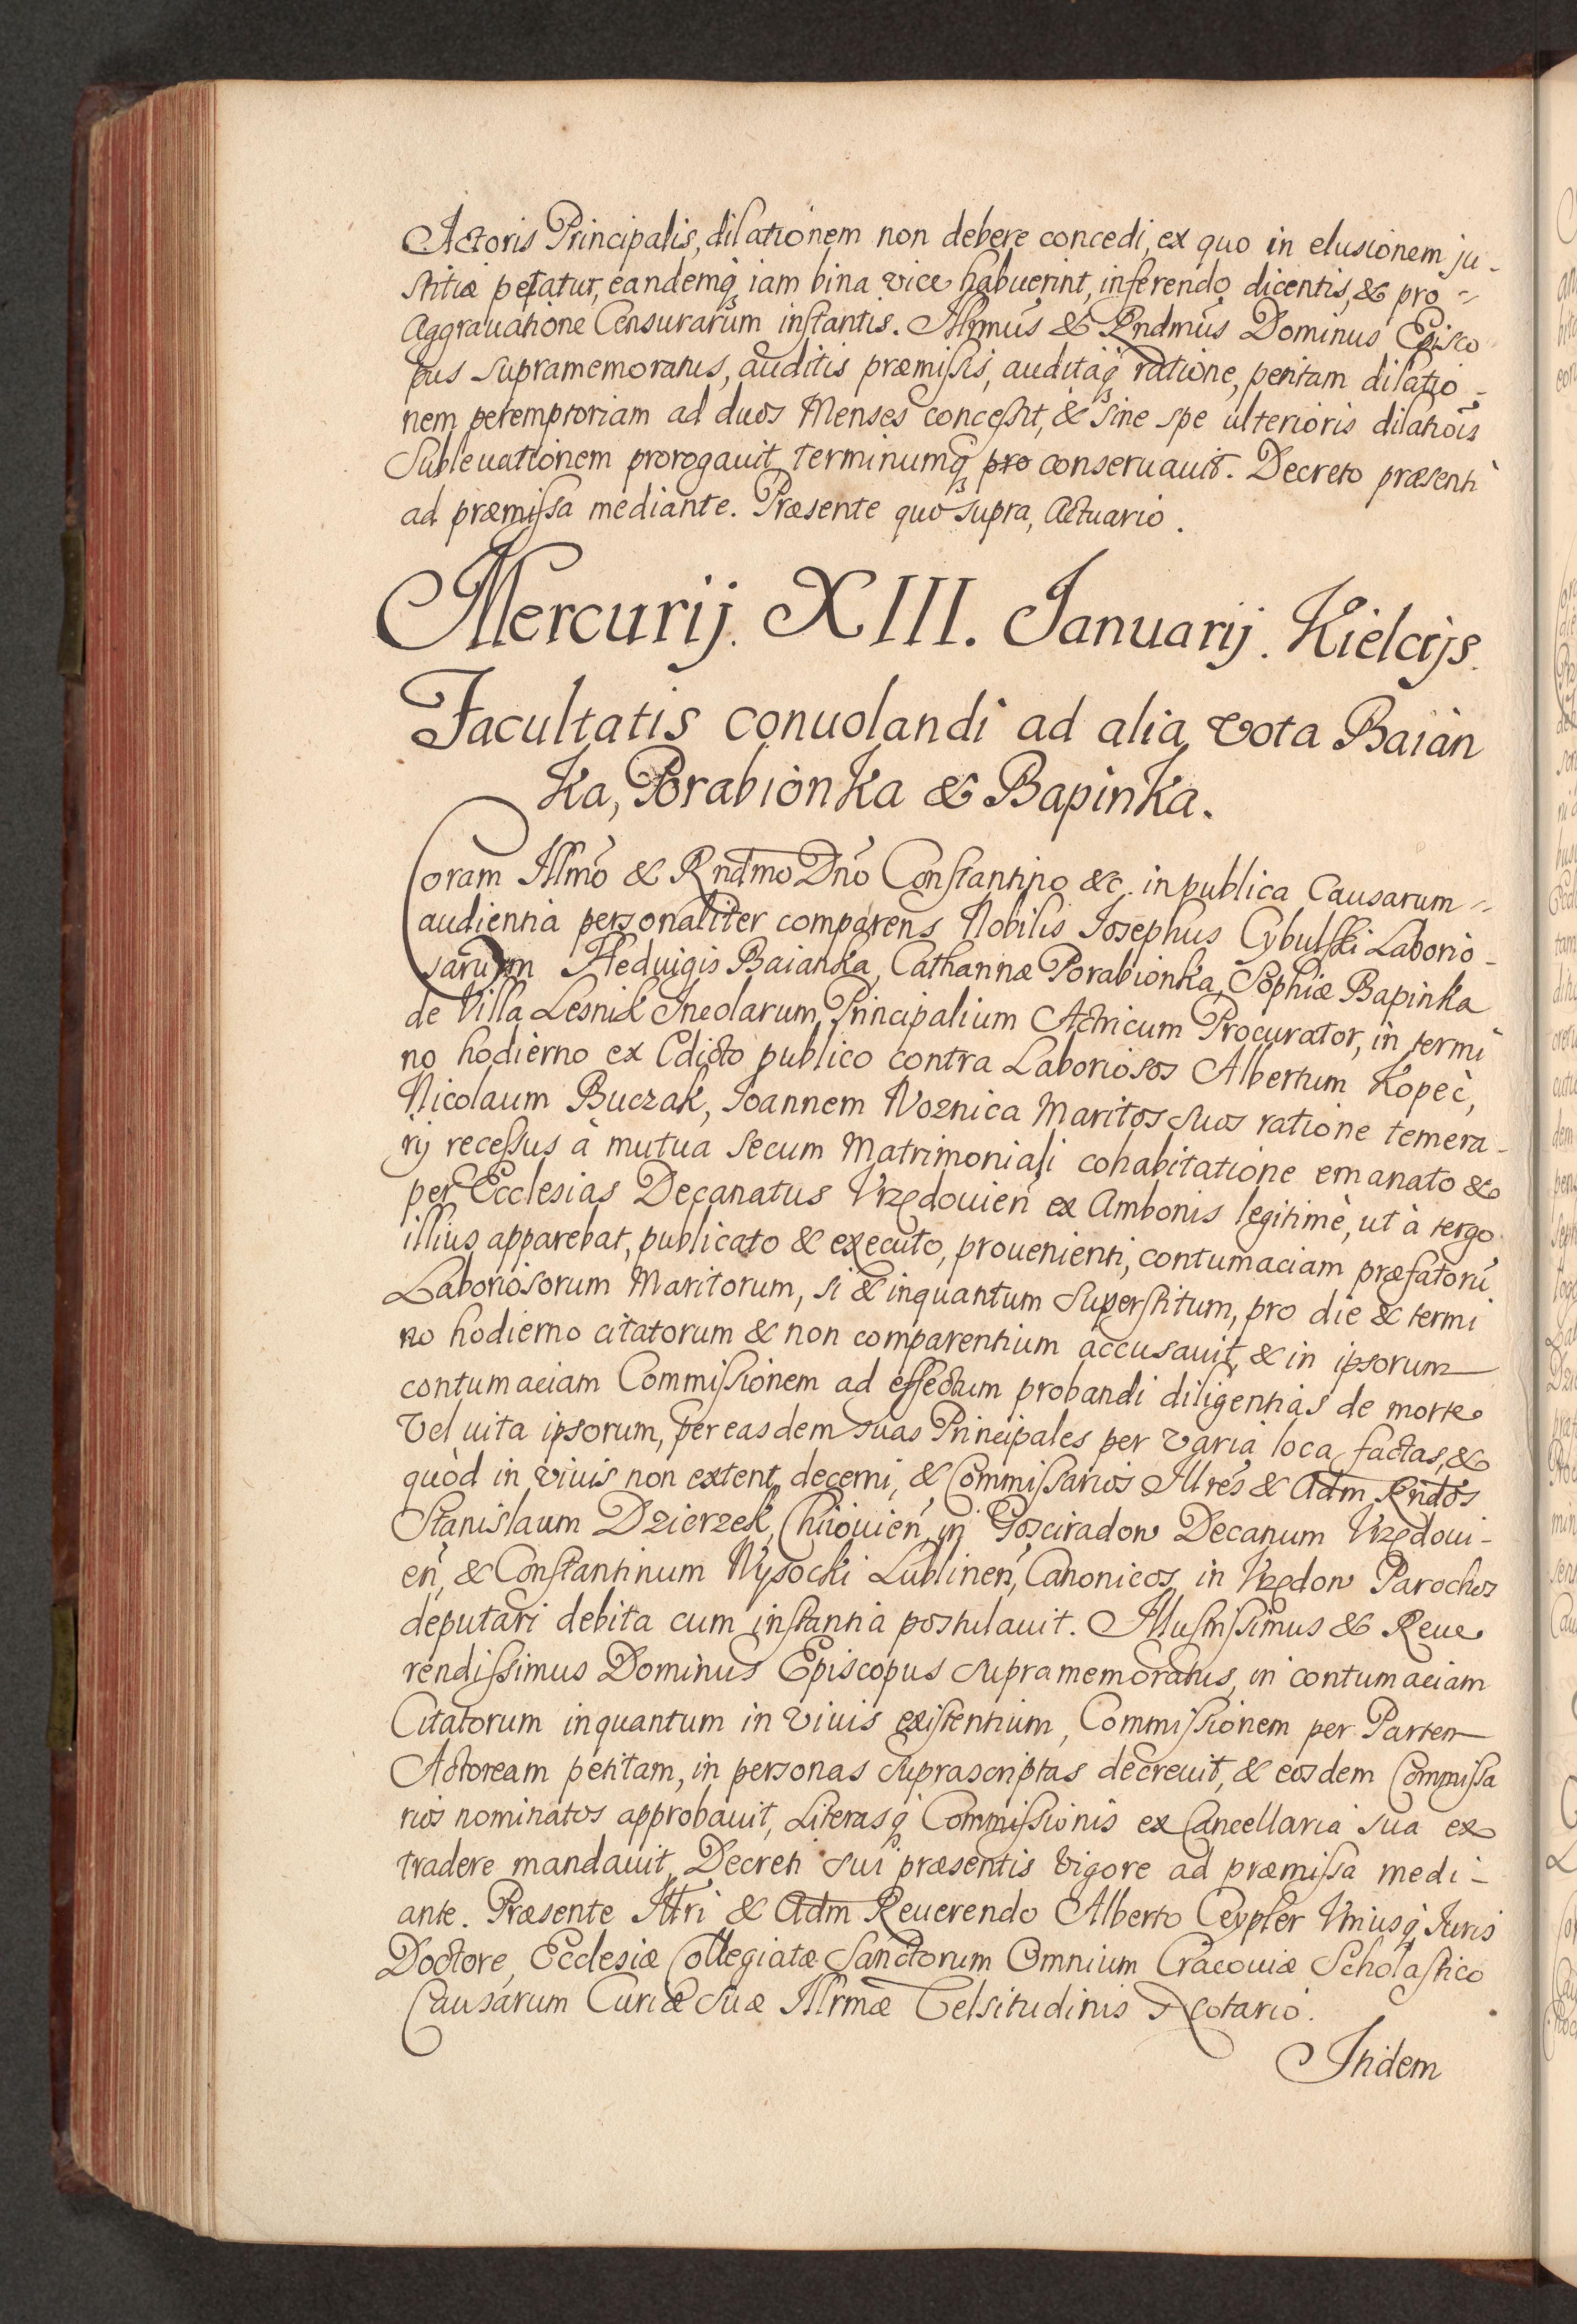 Actoris Principalis, dilationem non debere concedi, ex quo in elusionem ju-
stitiæ petatur, eandemq́ iam bina vice habuerint, inferendo, dicentis, & pro
Aggrauatione Censurarum instantis. Illrmus & Rndmus Dominus Episco
pus supramemoratus, auditis præmissis, auditaq́ ratione, petitam dilatio-
nem peremptoriam ad duos Menses concessit, & sine spe ulterioris dilatiois
Subleuationem prorogauit, terminumq́ pro conseruauit. Decreto præsenti
ad præmissa mediante. Præsente quo supra, Actuario.
Mercurij. XIII. Januarij. Kielcijs.
Facultatis conuolandi ad alia vota Baian
ka, Porabionka & Bapinka.
Coram Illmo & Rndmo Dno Constantino &c. in publica Causarum
audientia personaliter comparens Nobilis Josephus Cybulski Laborio-
sarum Heduigis Baianka, Catharinæ Porabionka, Sophiæ Bapinka
de Villa Lesnik Incolarum, Principalium Actricum Procurator, in termi
no hodierno ex Edicto publico contra Laboriosos Albertum Kopeć,
Nicolaum Buczak, Joannem Woznica Maritos suos ratione temera-
rij recessus à mutua secum Matrimoniali cohabitatione emanato &
per Ecclesias Decanatus Vrzędouień ex Ambonis legitimè, ut à tergo
illius apparebat, publicato & executo, prouenienti, contumaciam præfatorū
Laboriosorum Maritorum, si & inquantum superstitum, pro die & termi
no hodierno citatorum & non comparentium accusauit, & in ipsorum
contumaciam Commissionem ad effectum probandi diligentias de morte
Vel uita ipsorum, per easdem suas Principales per varia loca factas, &
quòd in viuis non extent, decerni, & Commissarios Illres & Adm Rndos
Stanislaum Dzierzek, Chiiouień, in Gosciradow Decanum Vrzędoui-
eń, & Constantinum Wysocki Lublineń, Canonicos, in Vrzędow Parochos
deputari debita cum instantia postulauit. Illustrissimus & Reue
rendissimus Dominus Episcopus supramemoratus, in contumaciam
Citatorum inquantum in viuis existentium, Commissionem per Partem
Actoream petitam, in personas suprascriptas decreuit, & eosdem Commissa
rios nominatos approbauit, Literasq́ Commissionis ex Cancellaria sua ex
tradere mandauit, Decreti sui præsentis vigore ad præmissa medi-
ante. Præsente Illri & Adm Reuerendo Alberto Ceypler Vtriusq́ Juris
Doctore, Ecclesiæ Collegiatæ Sanctorum Omnium Cracouiæ Scholastico
Causarum Curiæ suæ Illrmæ Celsitudinis Notario.
Itidem